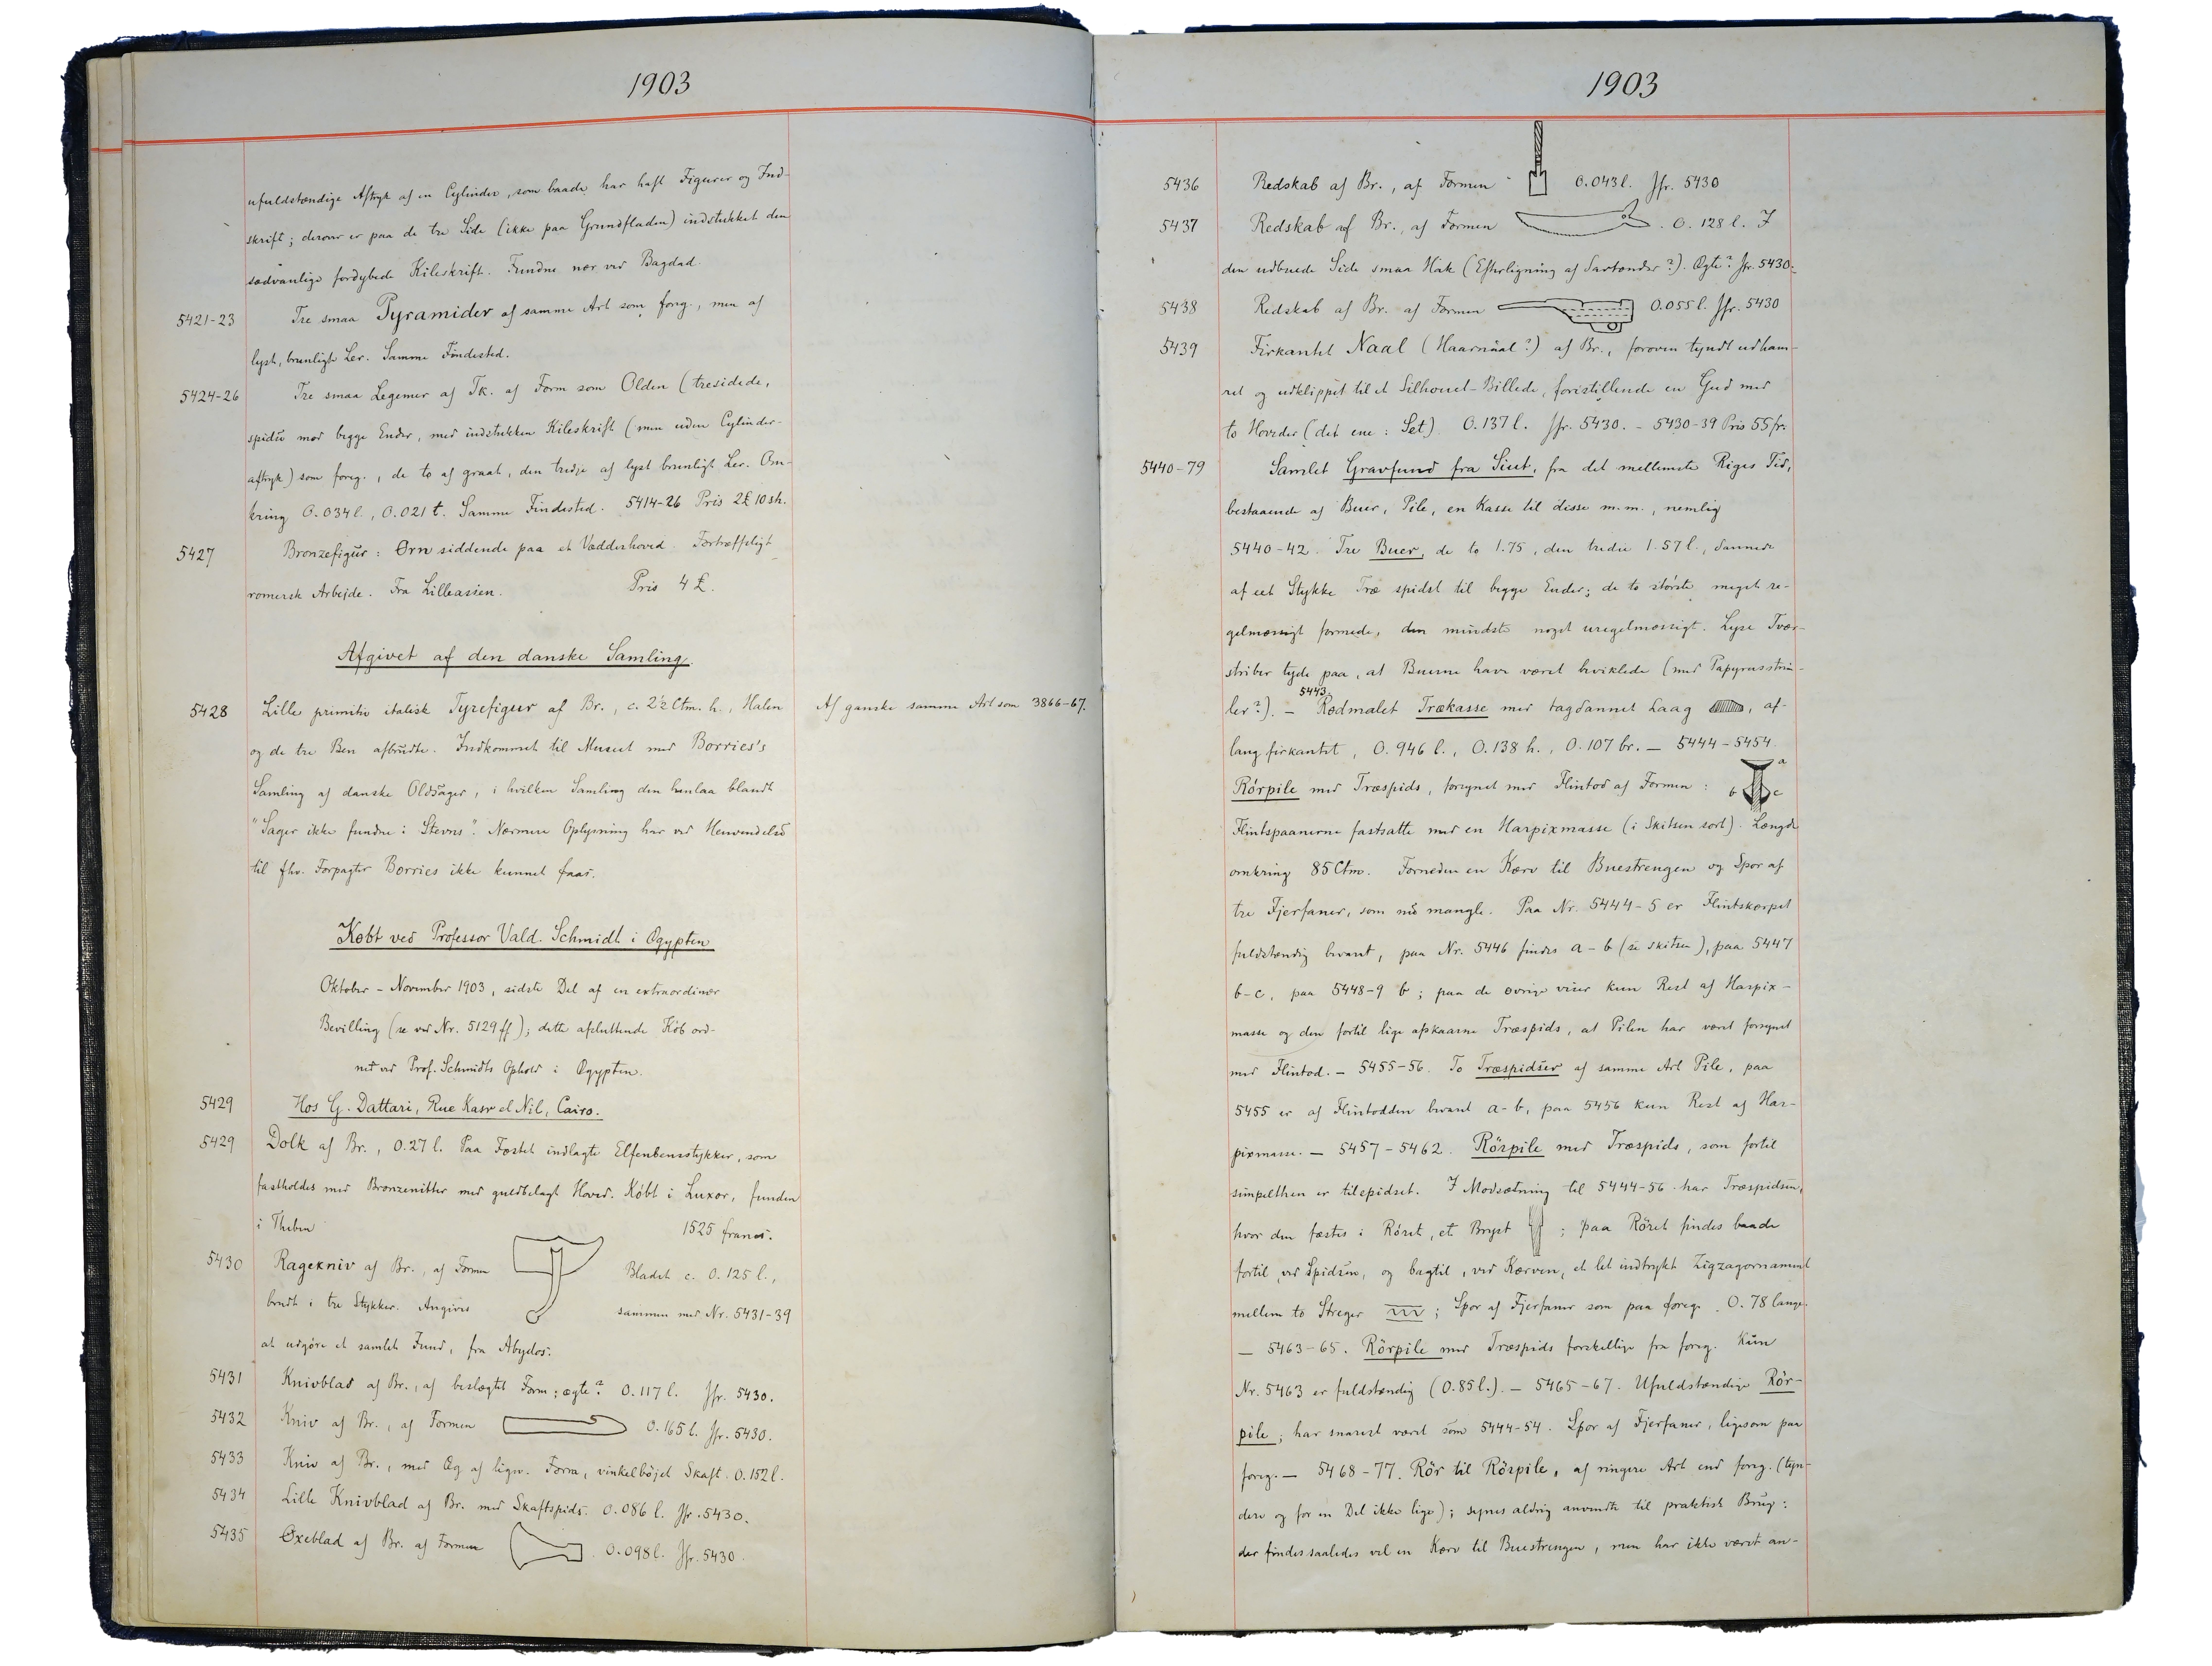 1903
ufuldstændige Aftryk af en Cylinder, som baade har haft Figurer og Ind-
skrift; derover er paa de tre Side (ikke paa Grundfladen) indstukket den
sædvanlige fordybede Kileskrift. Fundne nær ved Bagdad.
5421-23 Tre smaa Pyramider af samme Art som foreg., men af
lyst, brunligt Ler. Samme Findested.
5424-26 Tre smaa Legemer af Tk. af Form som Olden (tresidede,
spidse mod begge Ender, med indstukken Kileskrift (men uden Cylinder-
aftryk) som foreg., de to af graat, den tredje af lyst brunligt Ler. Om-
kring 0.034 l., 0.021 t. Samme Findested. 5414-26 Pris 2£ 10 sh.
5427 Bronzefigur: Ørn siddende paa et Vædderhoved. Fortræffeligt
romersk Arbejde. Fra Lilleasien. Pris 4 £.
Afgivet af den danske Samling.
5428 Lille primitiv italisk Tyrefigur af Br., c. 2½ Ctm. h., Halen
Af ganske samme Art som 3866-67.
og de tre Ben afbrudte. Indkommet til Museet med Borries's
Samling af danske Oldsager, i hvilken Samling den henlaa blandt
"Sager ikke fundne i Stevns". Nærmere Oplysning har ved Henvendelse
til fhv. Forpagter Borries ikke kunnet faas.
Købt ved Professor Vald. Schmidt i Ægypten
Oktober - November 1903, sidste Del af en extraordinær
Bevilling (se ved Nr. 5129 ff); dette afsluttende Køb ord-
net ved Prof. Schmidts Ophold i Ægypten.
5429 Hos G. Dattari, Rue Kasr el Nil, Cairo.
5429 Dolk af Br., 0.27 l. Paa Fæstet indlagte Elfenbensstykker, som
fastholdes med Bronzenitter med guldbelagt Hoved. Købt i Luxor, funden
i Theben 1525 francs.
5430 Ragekniv af Br., af Formen Bladet c. 0.125 l.,
brudt i tre Stykker. Angives sammen med Nr. 5431-39
at udgøre et samlet Fund, fra Abydos.
5431 Knivblad af Br., af beslægtet Form; ægte? 0.117 l. Jfr. 5430.
5432 Kniv af Br., af Formen 0.165 l. Jfr. 5430.
5433 Kniv af Br., med Æg af lign. Form, vinkelbøjet Skaft. 0.152 l.
5434 Lille Knivblad af Br. med Skaftspids. 0.086 l. Jfr. 5430.
5435 Øxeblad af Br. af Formen 0.098 l. Jfr. 5430.
1903
5436 Redskab af Br., af Formen 0.043 l. Jfr. 5430
5437 Redskab af Br., af Formen . 0.128 l. I
den udbuede Side smaa Hak (Efterligning af Savtænder?). Ægte? Jfr. 5430.
5438 Redskab af Br. af Formen 0.055 l. Jfr. 5430
5439 Firkantet Naal (Haarnaal?) af Br., foroven tyndt udham-
ret og udklippet til et Silhouet-Billede, forestillende en Gud med
to Hoveder (det ene: Set). 0.137 l. Jfr. 5430. - 5430-39 Pris 55 fr.
5440-79 Samlet Gravfund fra Siut, fra det mellemste Riges Tid,
bestaaende af Buer, Pile, en Kasse til disse m.m., nemlig
5440-42. Tre Buer, de to 1.75, den tredie 1.57 l., dannede
af eet Stykke Træ spidst til begge Ender; de to største meget re-
gelmæssigt formede, den mindste noget uregelmæssigt. Lyse Tvær-
striber tyde paa, at Buerne have været beviklede (med Papyrusstrim-
ler?). - 5443. Rødmalet Trækasse med tagdannet Laag , af-
lang firkantet, 0.946 l., 0.138 h., 0.107 br. - 5444-5454.
Rörpile med Træspids, forsynet med Flintod af Formen: a b c
Flintspaanerne fastsatte med en Harpixmasse (i Skitsen sort). Længde
omkring 85 Ctm. Forneden en Kærv til Buestrengen og Spor af
tre Fjerfaner, som nu mangle. Paa Nr. 5444-5 er Flintskærpet
fuldstændig bevaret, paa Nr. 5446 findes a-b (se skitsen), paa 5447
b-c, paa 5448-9 b; paa de øvrige viser kun Rest af Harpix-
masse og den fortil lige afskaarne Træspids, at Pilen har været forsynet
med Flintod. - 5455-56. To Træspidser af samme Art Pile, paa
5455 er af Flintodden bevaret a-b, paa 5456 kun Rest af Har-
pixmasse. - 5457-5462. Rörpile med Træspids, som fortil
simpelthen er tilspidset. I Modsætning til 5444-56 har Træspidsen,
hvor den fæstes i Röret, et Bryst ; paa Röret findes baade
fortil, ved Spidsen, og bagtil, ved Kærven, et let indtrykt Zigzagornament
mellem to Streger ; Spor af Fjerfaner som paa foreg. 0.78 lange.
- 5463-65. Rörpile med Træspids forskellige fra foreg. Kun
Nr. 5463 er fuldstændig (0.85 l.). - 5465-67. Ufuldstændige Rör-
pile; har snarest været som 5444-54. Spor af Fjerfaner, ligesom paa
foreg. - 5468-77. Rör til Rörpile, af ringere Art end foreg. (tyn-
dere og for en Del ikke lige); synes aldrig anvendte til praktisk Brug:
der findes saaledes vel en Kærv til Buestrengen, men har ikke været an-